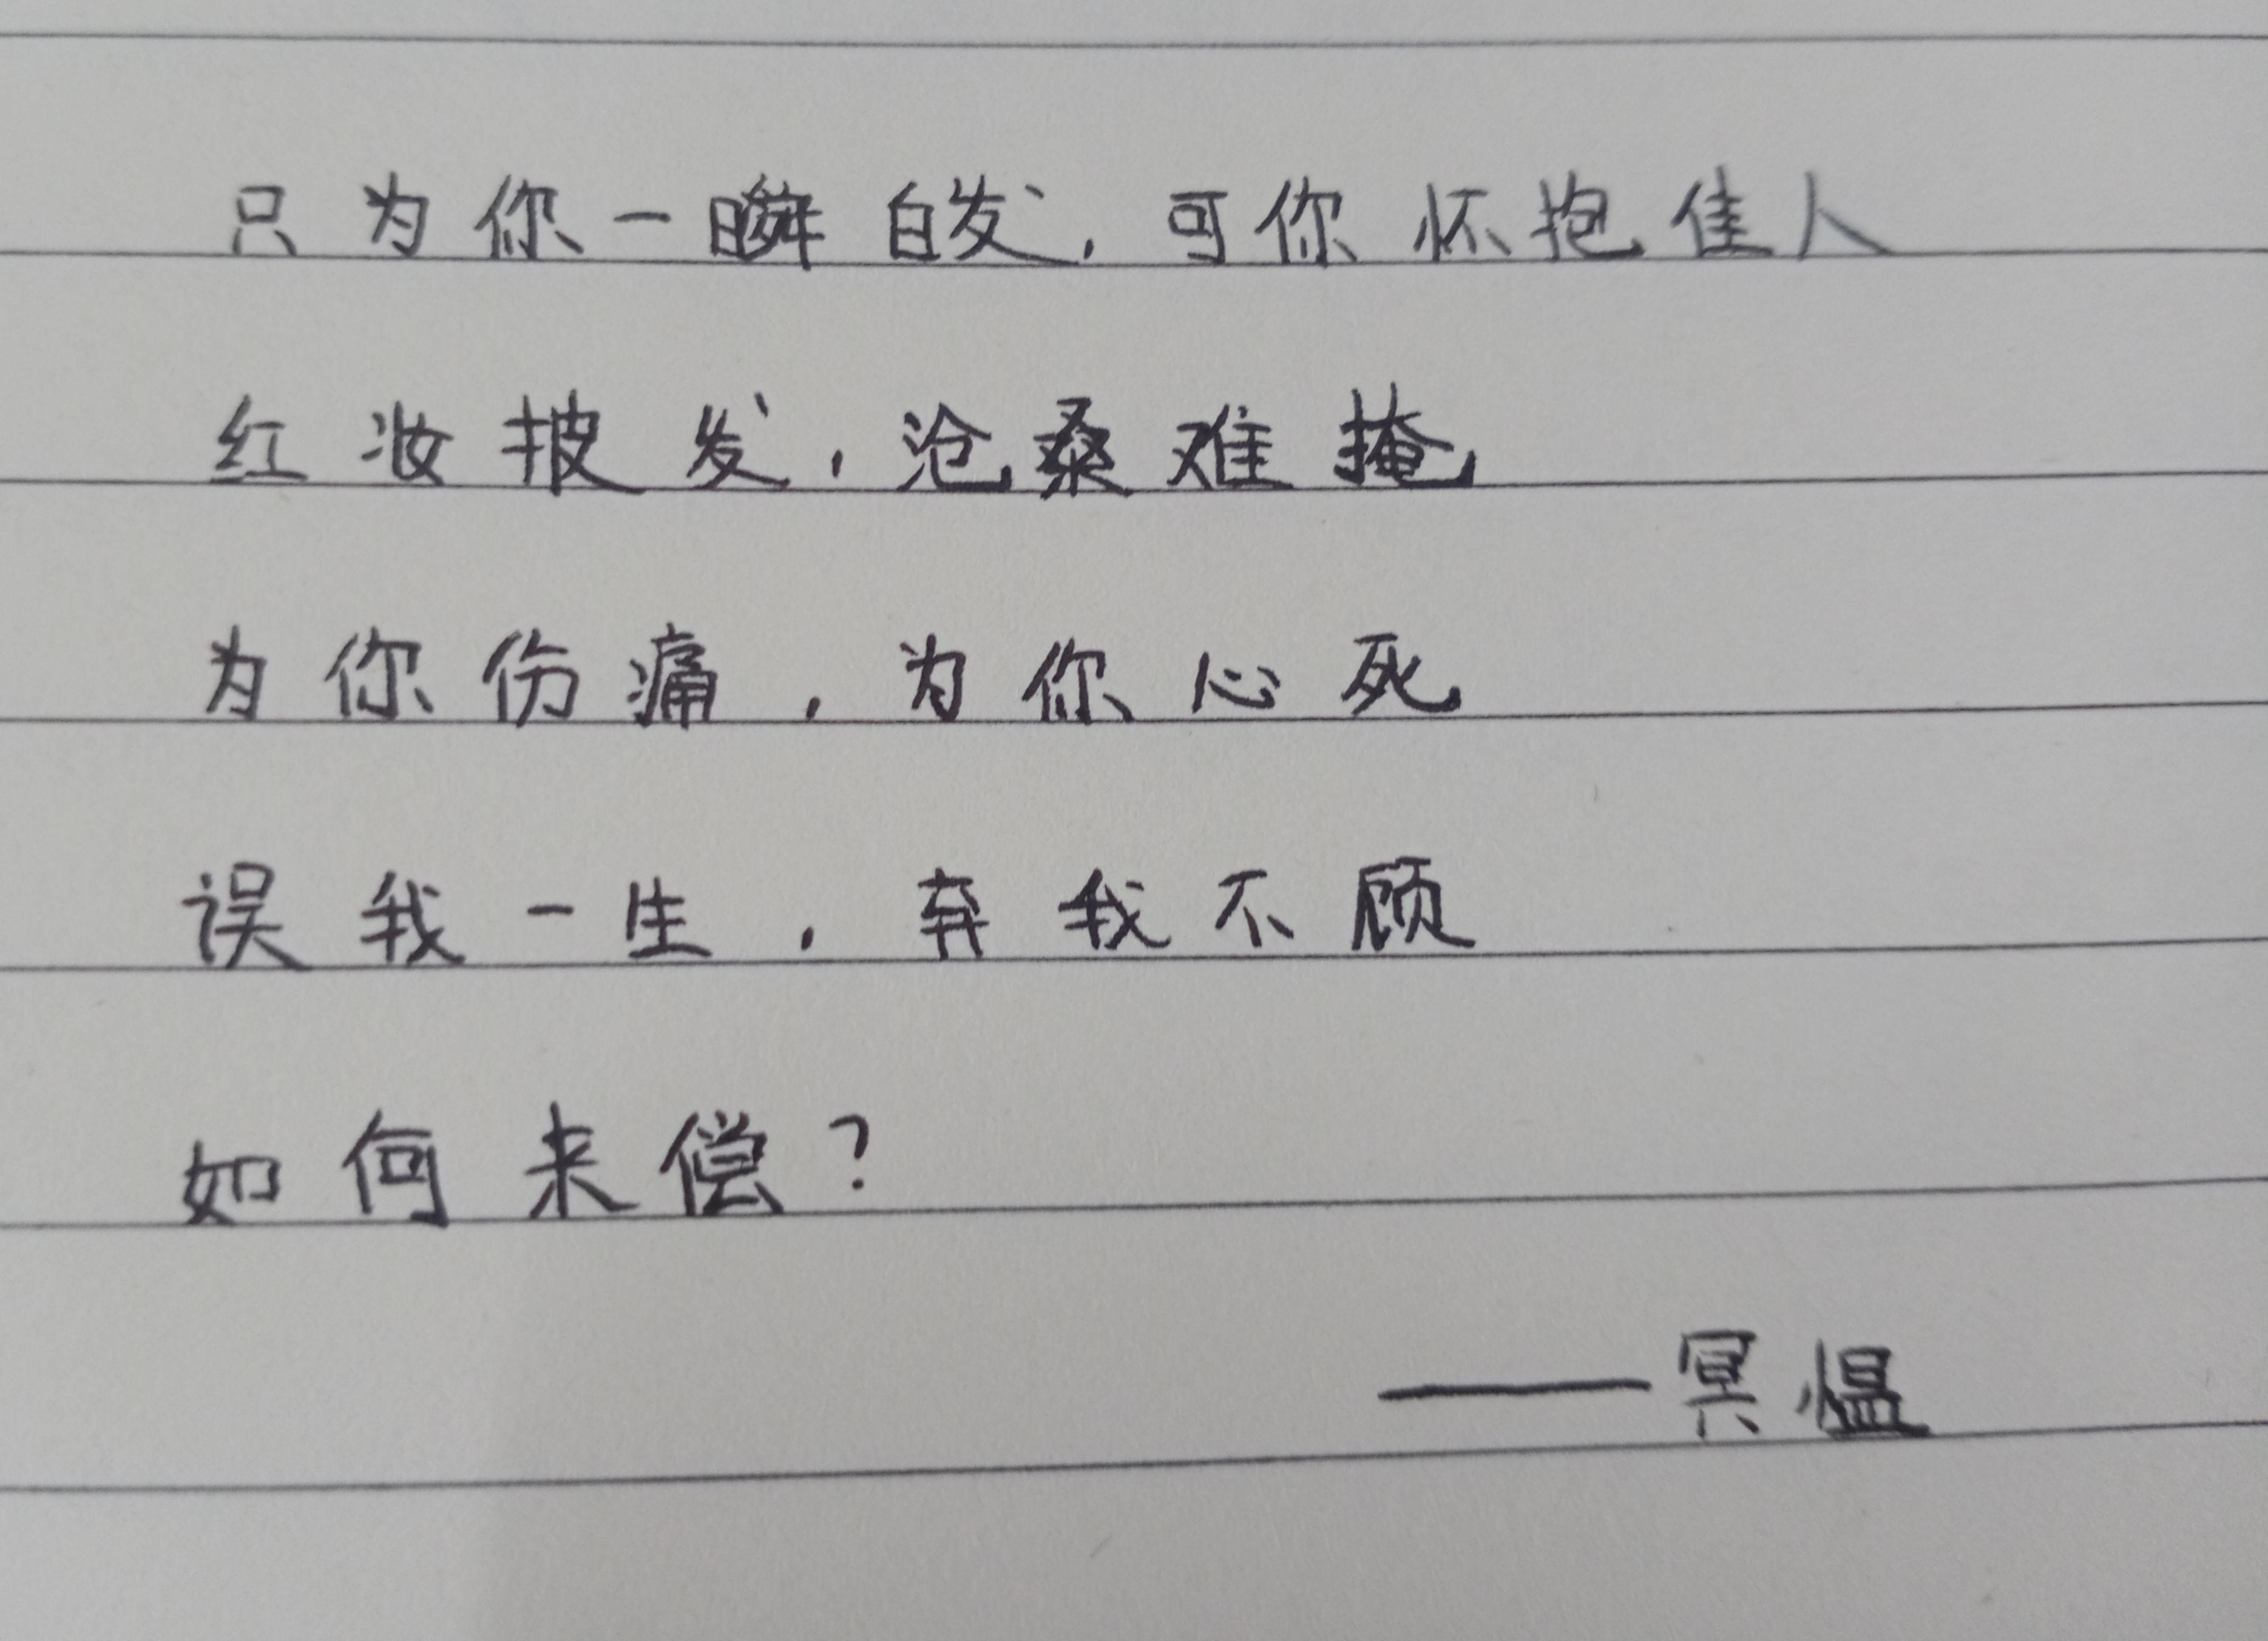 只为你一瞬白发，可你怀抱佳人
红妆披发，沧桑难掩
为你伤痛，为你心死
误我一生，弃我不顾
如何来偿？
——冥愠